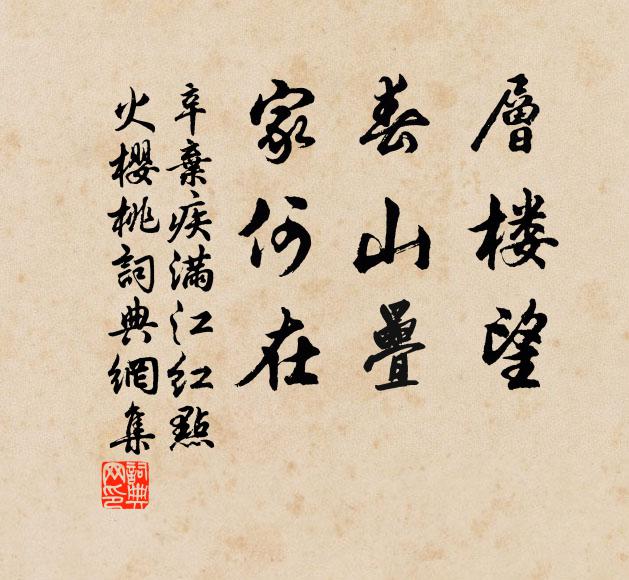 層楼望
春山疊
家何在
辛棄疾滿江紅點
火櫻桃詞典網集
詞典
网印